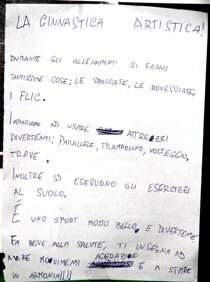 LA GINNASTICA ARTISTICA!
DURANTE GLI ALLENAMENTI SI FANNO
TANTISSIME COSE: LE SPACCATE, LE ROVESCIATE,
I FLIC.
IMPARIAMO AD USARE ATTREZZI
DIVERTENTI: PARALLELE, TRAMPOLINO, VOLTEGGIO,
TRAVE.
INOLTRE SI ESEGUONO GLI ESERCIZI
AL SUOLO.
È UNO SPORT MOLTO BELLO E DIVERTENTE
FA BENE ALLA SALUTE, TI INSEGNA AD
AVERE MOVIMENTI E A STARE
IN ARMONIA!!!!